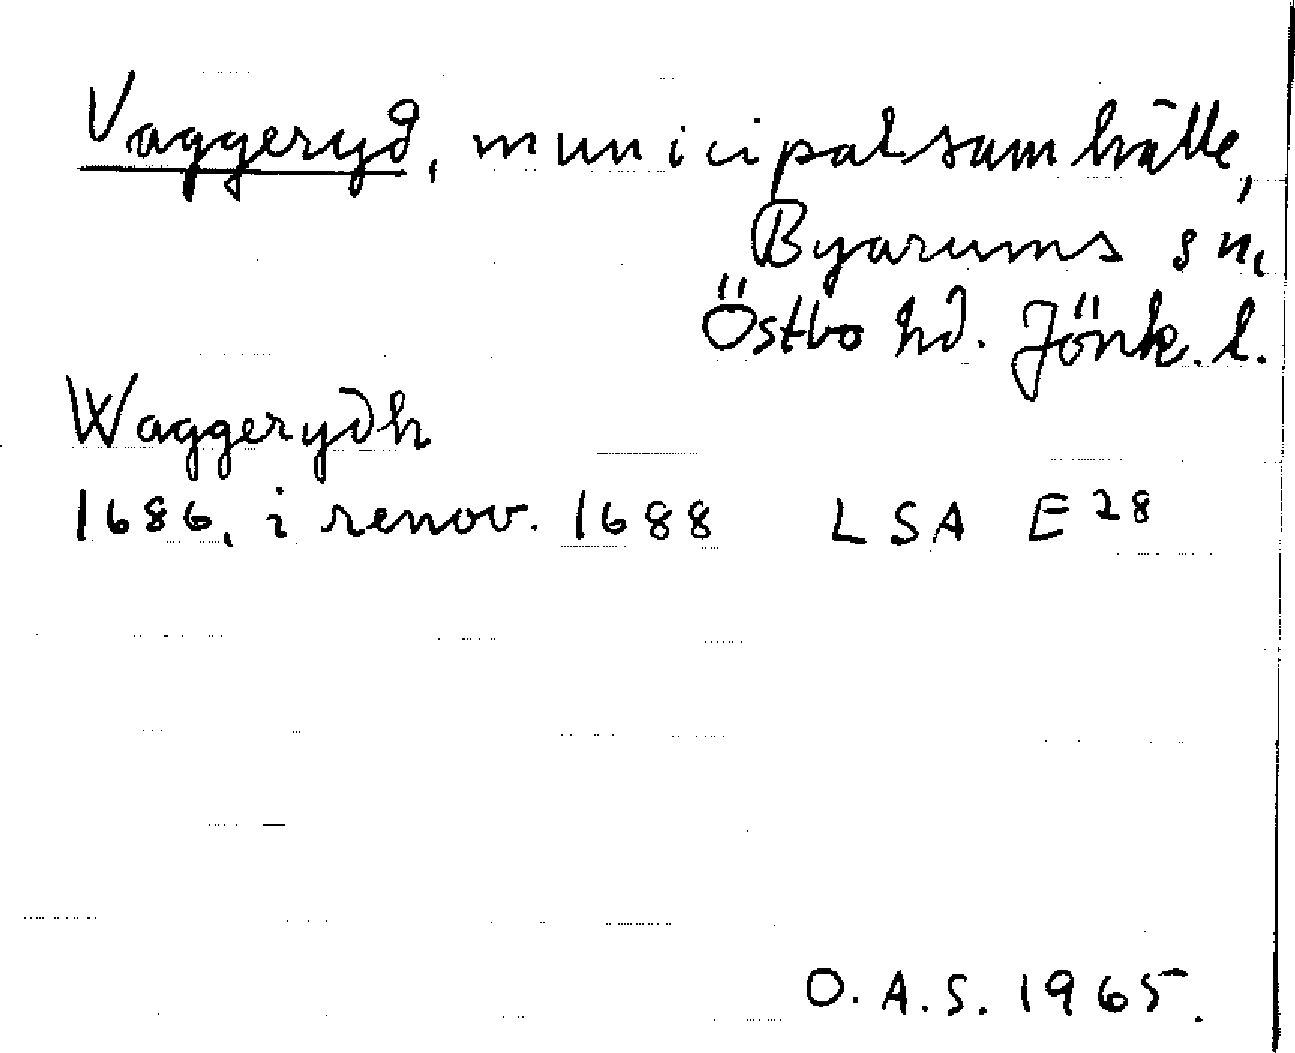 Vaggeryd, municipalsamhälle,
Byarums sn,
Östbo hd. Jönk. l.
Waggerydh
1686, i renov. 1688 LSA E28
O.A.S. 1965.